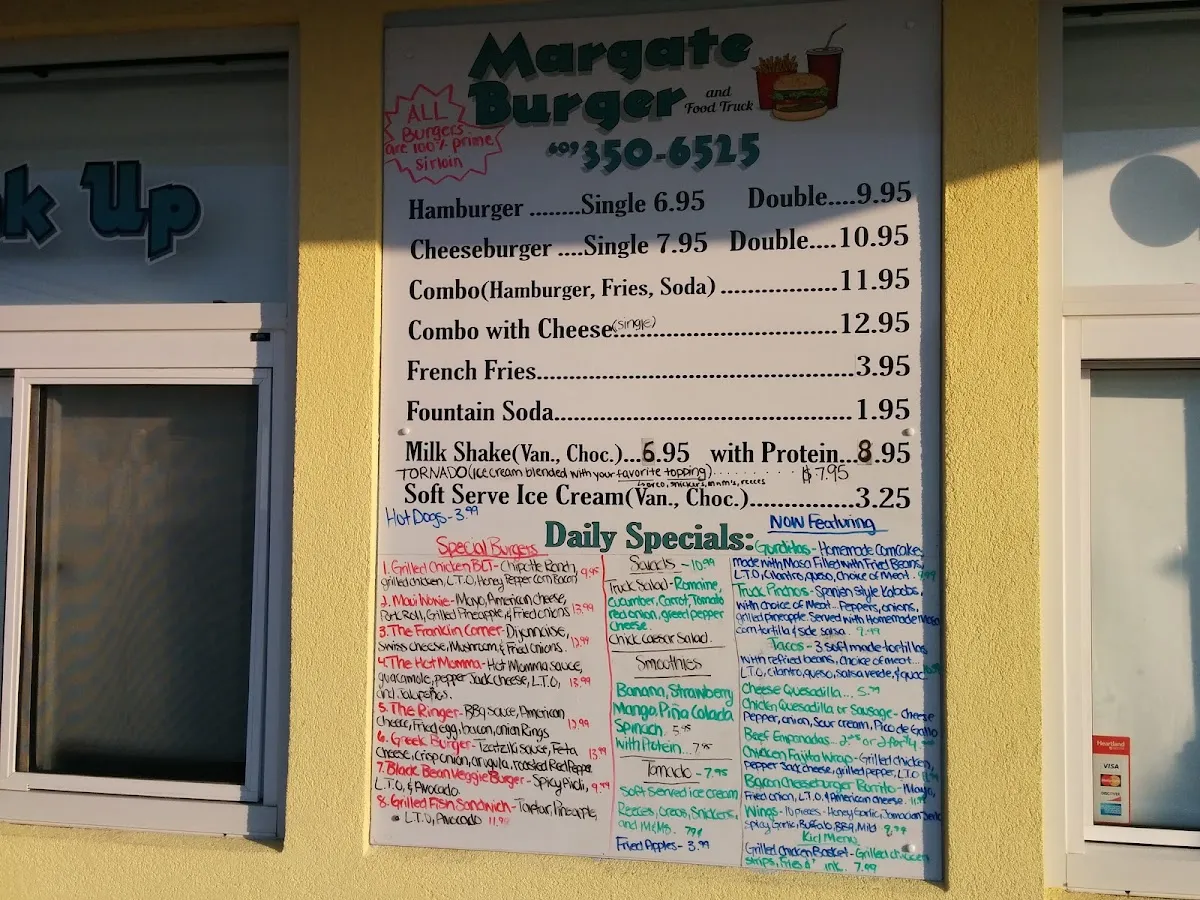 k Up
Margate
Burger and
Food Truck
609 350-6525
ALL
Burgers
are 100% prime
sirloin
Hamburger ........Single 6.95 Double....9.95
Cheeseburger ....Single 7.95 Double....10.95
Combo(Hamburger, Fries, Soda) ................11.95
Combo with Cheese(single)................12.95
French Fries................3.95
Fountain Soda................1.95
Milk Shake(Van., Choc.)...6.95 with Protein...8.95
TORNADO(ice cream blended with your favorite topping)........$7.95
oreo, snickers, mnm's, reeces
Soft Serve Ice Cream(Van., Choc.)................3.25
Hot Dogs - 3.99
Daily Specials:
Special Burgers
1. Grilled Chicken BLT - Chipotle Ranch,
grilled chicken, L.T.O, Honey Pepper Corn Bacon 9.95
2. Maui Wowie - Mayo, American cheese,
Pork Roll, Grilled Pineapple, & Fried onions 13.99
3. The Franklin Corner - Dijonnaise,
Swiss cheese, Mushroom, & Fried onions. 12.99
4. The Hot Momma - Hot Momma sauce,
guacamole, pepper Jack cheese, L.T.O, 13.99
and Jalapeños.
5. The Ringer - BBQ sauce, American
cheese, Fried egg, bacon, onion Rings 12.99
6. Greek Burger - Tzatziki sauce, Feta 13.99
cheese, crisp onion, arugula, roasted Red Pepper
7. Black Bean Veggie Burger - Spicy Aioli, 9.99
L.T.O, & Avocado.
8. Grilled Fish Sandwich - Tartar, Pineapple,
L.T.O, Avocado 11.99
Salads - 10.99
Truck Salad - Romaine,
cucumber, Carrot, Tomato
red onion, green pepper
cheese.
Chick Caesar Salad.
Smoothies
Banana, Strawberry
Mango, Piña Colada
Spinach. 5.95
With Protein...7.95
Tornado - 7.95
Soft Served ice cream
Reeces, Oreos, Snickers,
and M&Ms.
Fried Apples - 3.99
NOW Featuring
Gorditas - Homemade Corncakes
made with Masa Filled with Fried Beans,
L.T.O, Cilantro, queso, choice of Meat. 9.99
Truck Pinchos - Spanish Style Kabobs,
with choice of Meat... Peppers, onions,
grilled pineapple. Served with Homemade Masa
corn tortilla & side salsa.
Tacos - 3 soft made tortillas
with refried beans, choice of meat...
L.T.O, cilantro, queso, salsa verde, & guac
Cheese Quesadilla... 5.99
Chicken Quesadilla or Sausage - cheese
Pepper, onion, Sour cream, Pico de Gallo
Beef Empanadas...
Chicken Fajita Wrap - Grilled chicken,
pepper Jack cheese, grilled pepper, L.T.O
Bacon Cheeseburger Burrito - Mayo,
Fried onion, L.T.O, & American cheese.
Wings - 10 pieces - Honey Garlic, Jamaican Jerk
Spicy Garlic, Buffalo, BBQ, Mild 8.99
Kid Menu
Grilled Chicken Basket - Grilled chicken
strips, Fries & 7.99
Heartland
VISA
MasterCard
DISCOVER